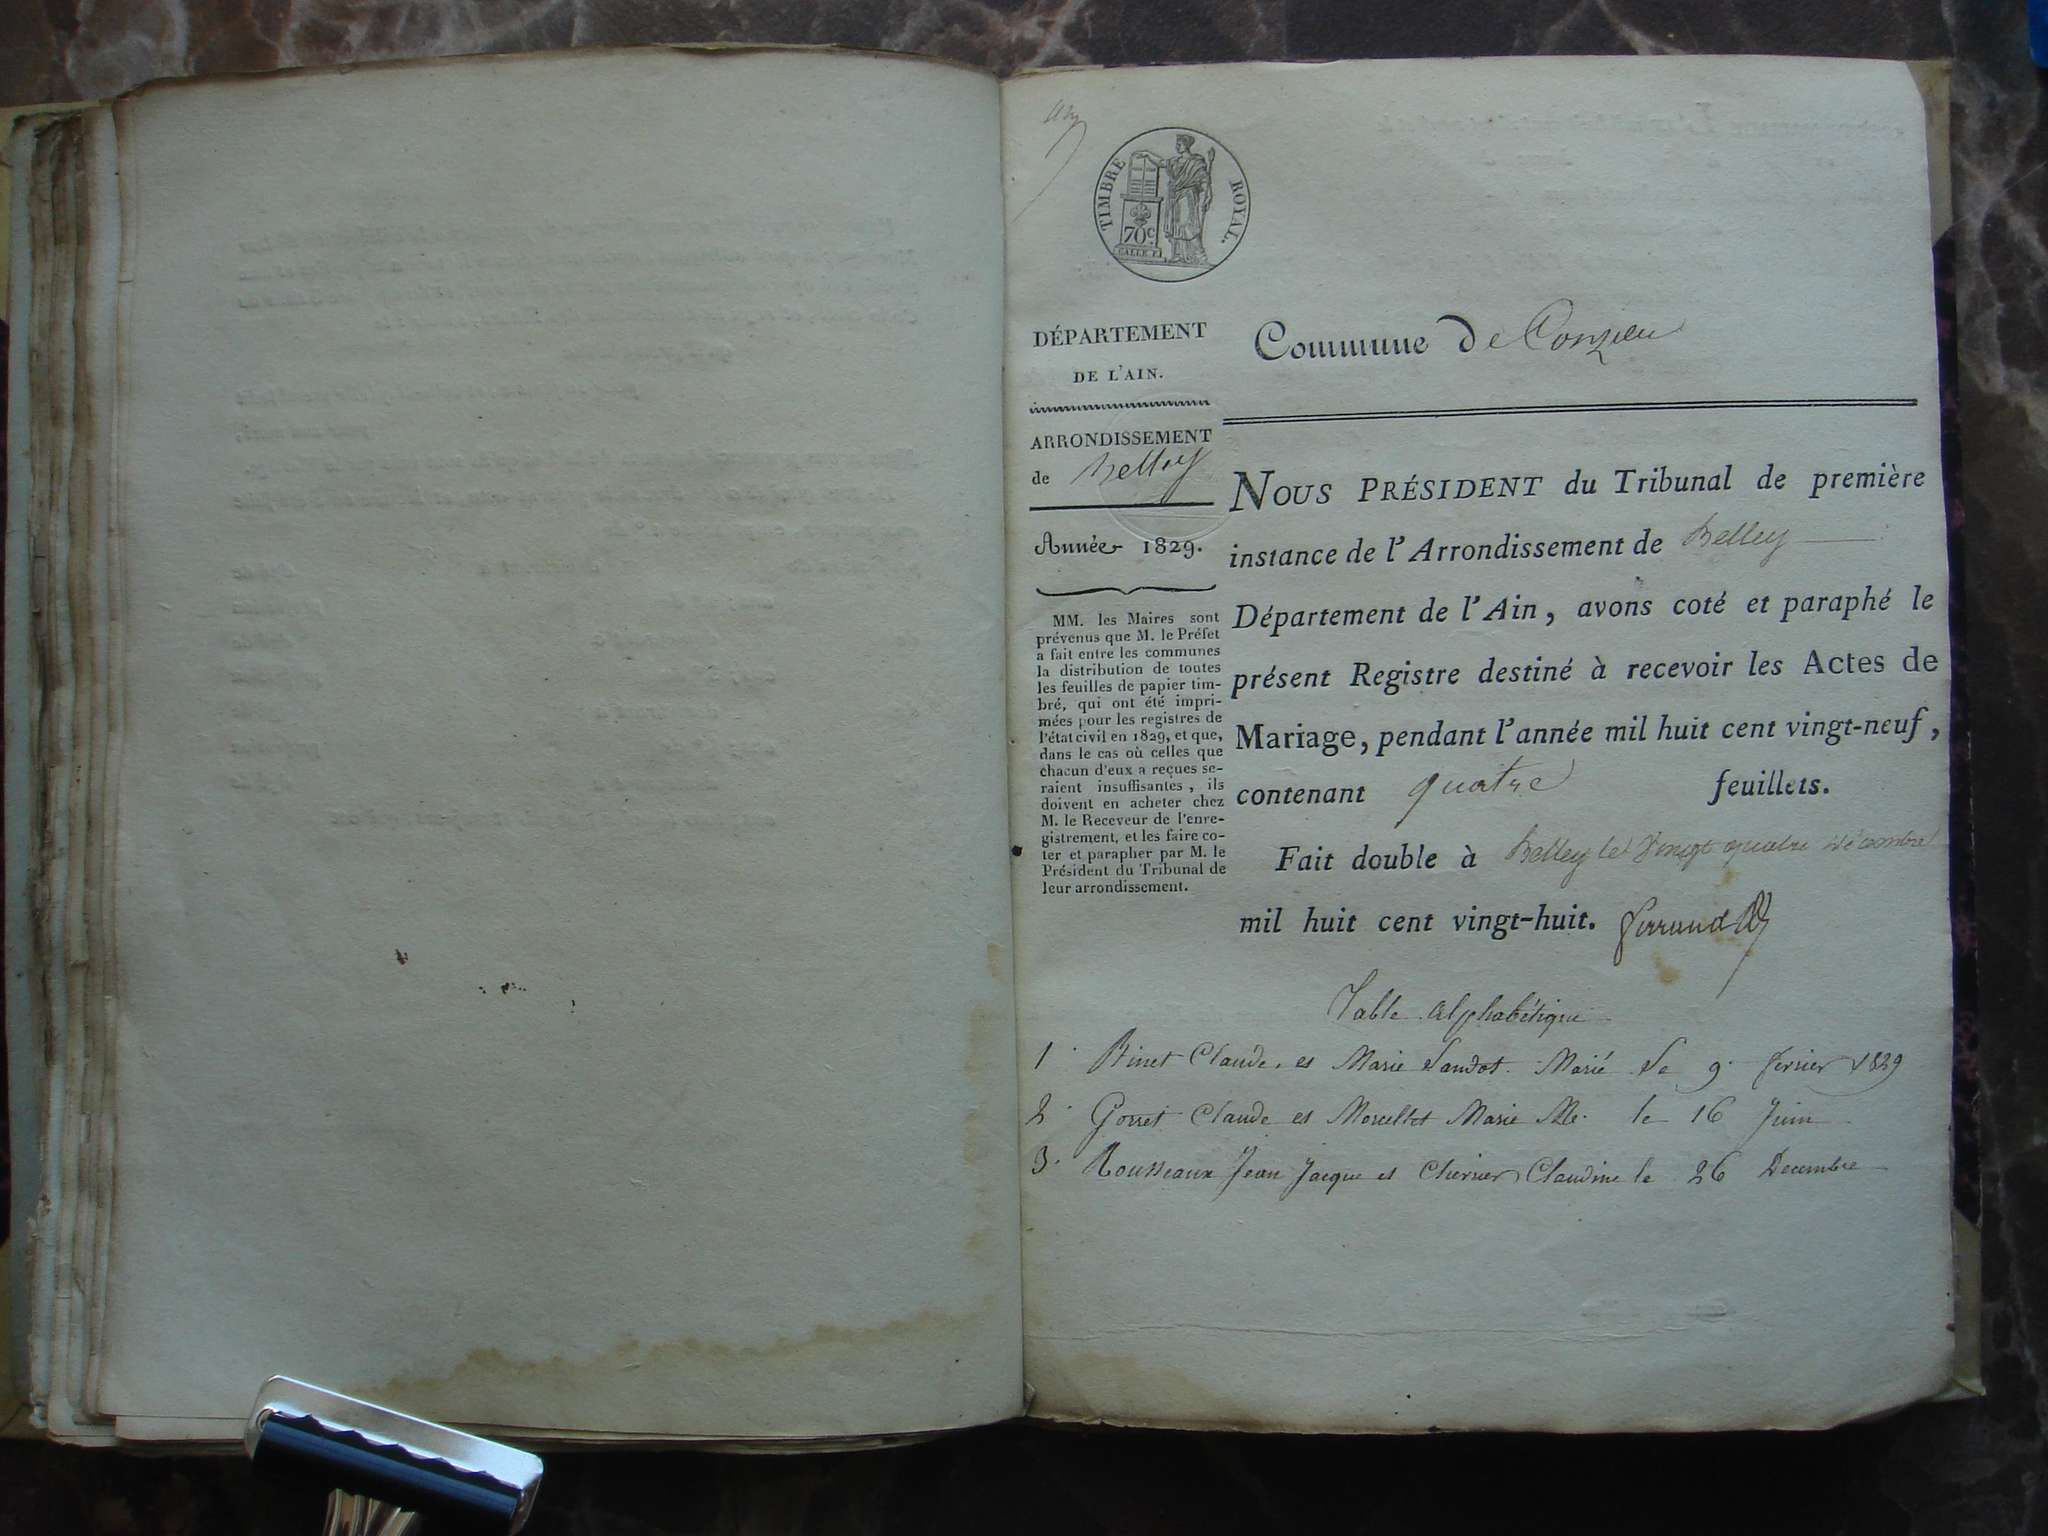 TIMBRE ROYAL.
70c
DÉPARTEMENT
DE L'AIN.
ARRONDISSEMENT
de Belley
Année 1829.
MM. les Maires sont
prévenus que M. le Préfet
a fait entre les communes
la distribution de toutes
les feuilles de papier tim-
bré, qui ont été impri-
mées pour les registres de
l'état civil en 1829, et que,
dans le cas où celles que
chacun d'eux a reçues se-
raient insuffisantes, ils
doivent en acheter chez
M. le Receveur de l'enre-
gistrement, et les faire co-
ter et parapher par M. le
Président du Tribunal de
leur arrondissement.
Commune de Conzieu
NOUS PRÉSIDENT du Tribunal de première
instance de l'Arrondissement de Belley
Département de l'Ain, avons coté et paraphé le
présent Registre destiné à recevoir les Actes de
Mariage, pendant l'année mil huit cent vingt-neuf,
contenant quatre feuillets.
Fait double à Belley le vingt quatre décembre
mil huit cent vingt-huit. Ferrand
Table Alphabétique
1 Binet Claude et Marie Marié le 9 février 1829
2 Gorret Claude et Marie le 16 Juin
3 Rousseaux Jean Jacque et Claudine le 26 Decembre